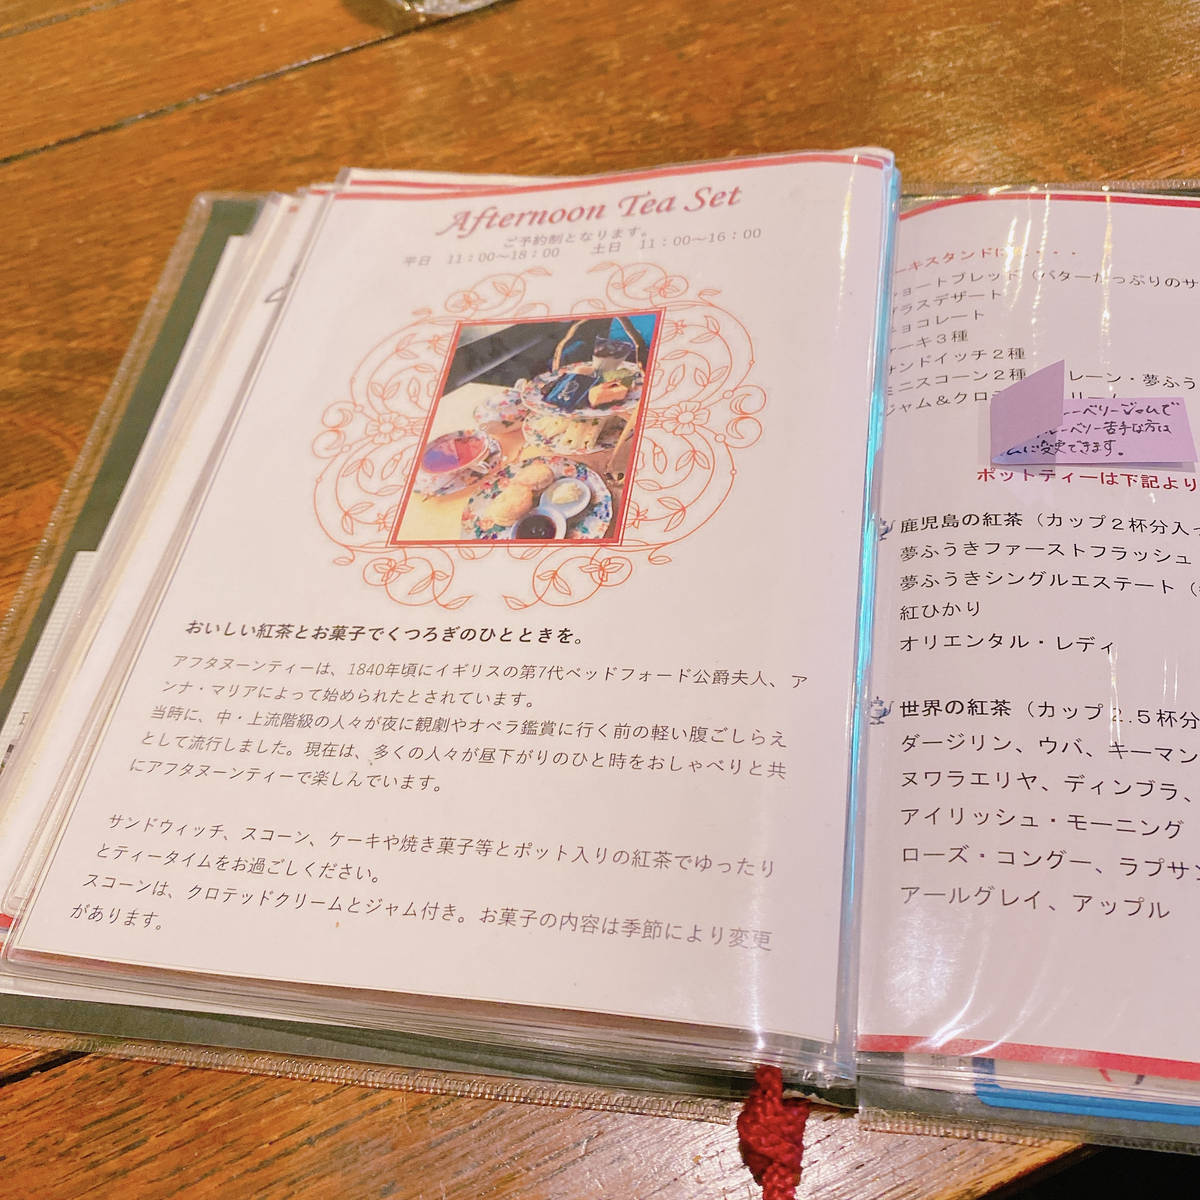 Afternoon Tea Set
ご予約制となります。
平日 11：00～18：00 土日 11：00～16：00
おいしい紅茶とお菓子でくつろぎのひとときを。
アフタヌーンティーは、1840年頃にイギリスの第7代ベッドフォード公爵夫人、ア
ンナ・マリアによって始められたとされています。
当時に、中・上流階級の人々が夜に観劇やオペラ鑑賞に行く前の軽い腹ごしらえ
として流行しました。現在は、多くの人々が昼下がりのひと時をおしゃべりと共
にアフタヌーンティーで楽しんでいます。
サンドウィッチ、スコーン、ケーキや焼き菓子等とポット入りの紅茶でゆったり
とティータイムをお過ごしください。
スコーンは、クロテッドクリームとジャム付き。お菓子の内容は季節により変更
があります。
ーキスタンドに
ョートブレッド（バターたっぷりのサ
グラスデザート
チョコレート
ケーキ３種
サンドイッチ２種
ミニスコーン２種 レーン・夢ふう
ジャム＆クロテ リーム
ーベリージャムで
ーベリー苦手な方は
ムに変更できます。
ポットティーは下記より
鹿児島の紅茶（カップ２杯分入っ
夢ふうきファーストフラッシュ
夢ふうきシングルエステート（
紅ひかり
オリエンタル・レディ
世界の紅茶（カップ２.５杯分
ダージリン、ウバ、キーマン
ヌワラエリヤ、ディンブラ、
アイリッシュ・モーニング
ローズ・コングー、ラプサン
アールグレイ、アップル